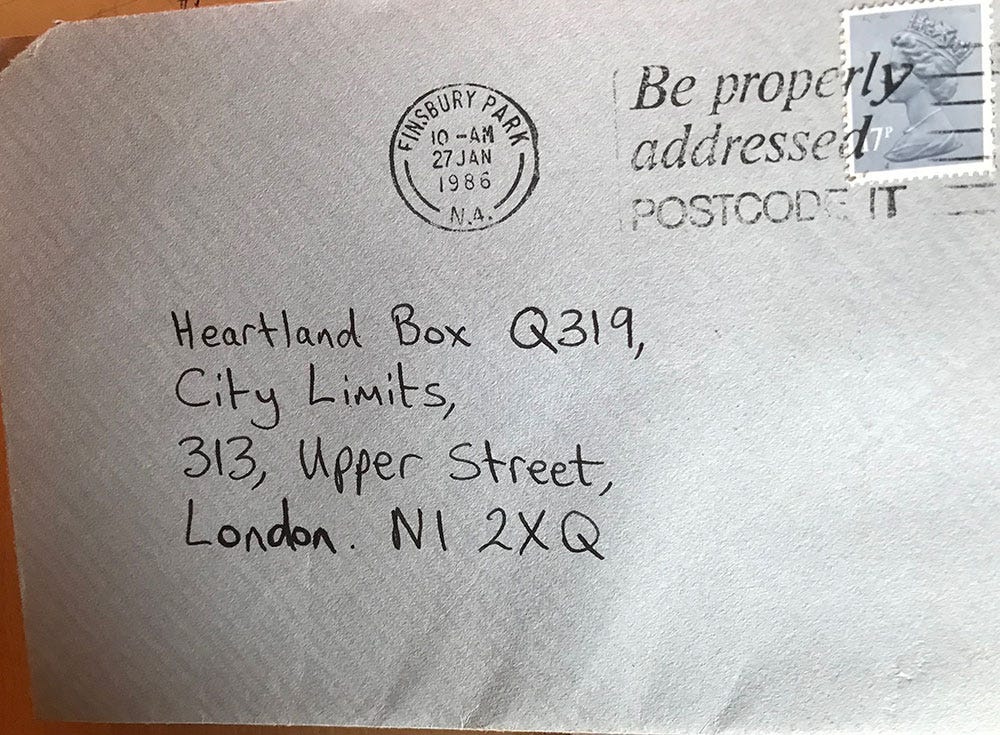 FINSBURY PARK
10-AM
27 JAN
1986
N.4.
Be properly
addressed
POSTCODE IT
17P
Heartland Box Q319,
City Limits,
313, Upper Street,
London. N1 2XQ